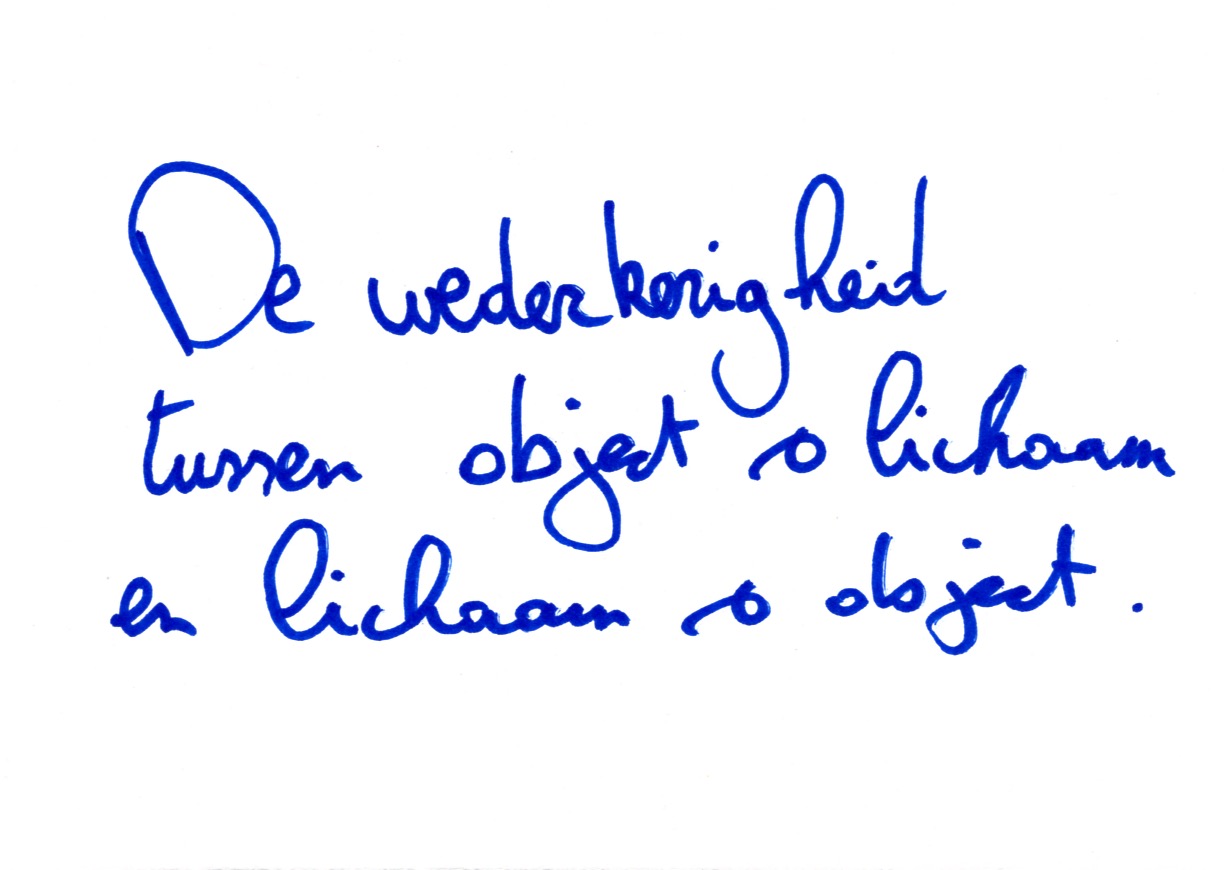 De wederkerigheid
tussen object & lichaam
en lichaam & object.